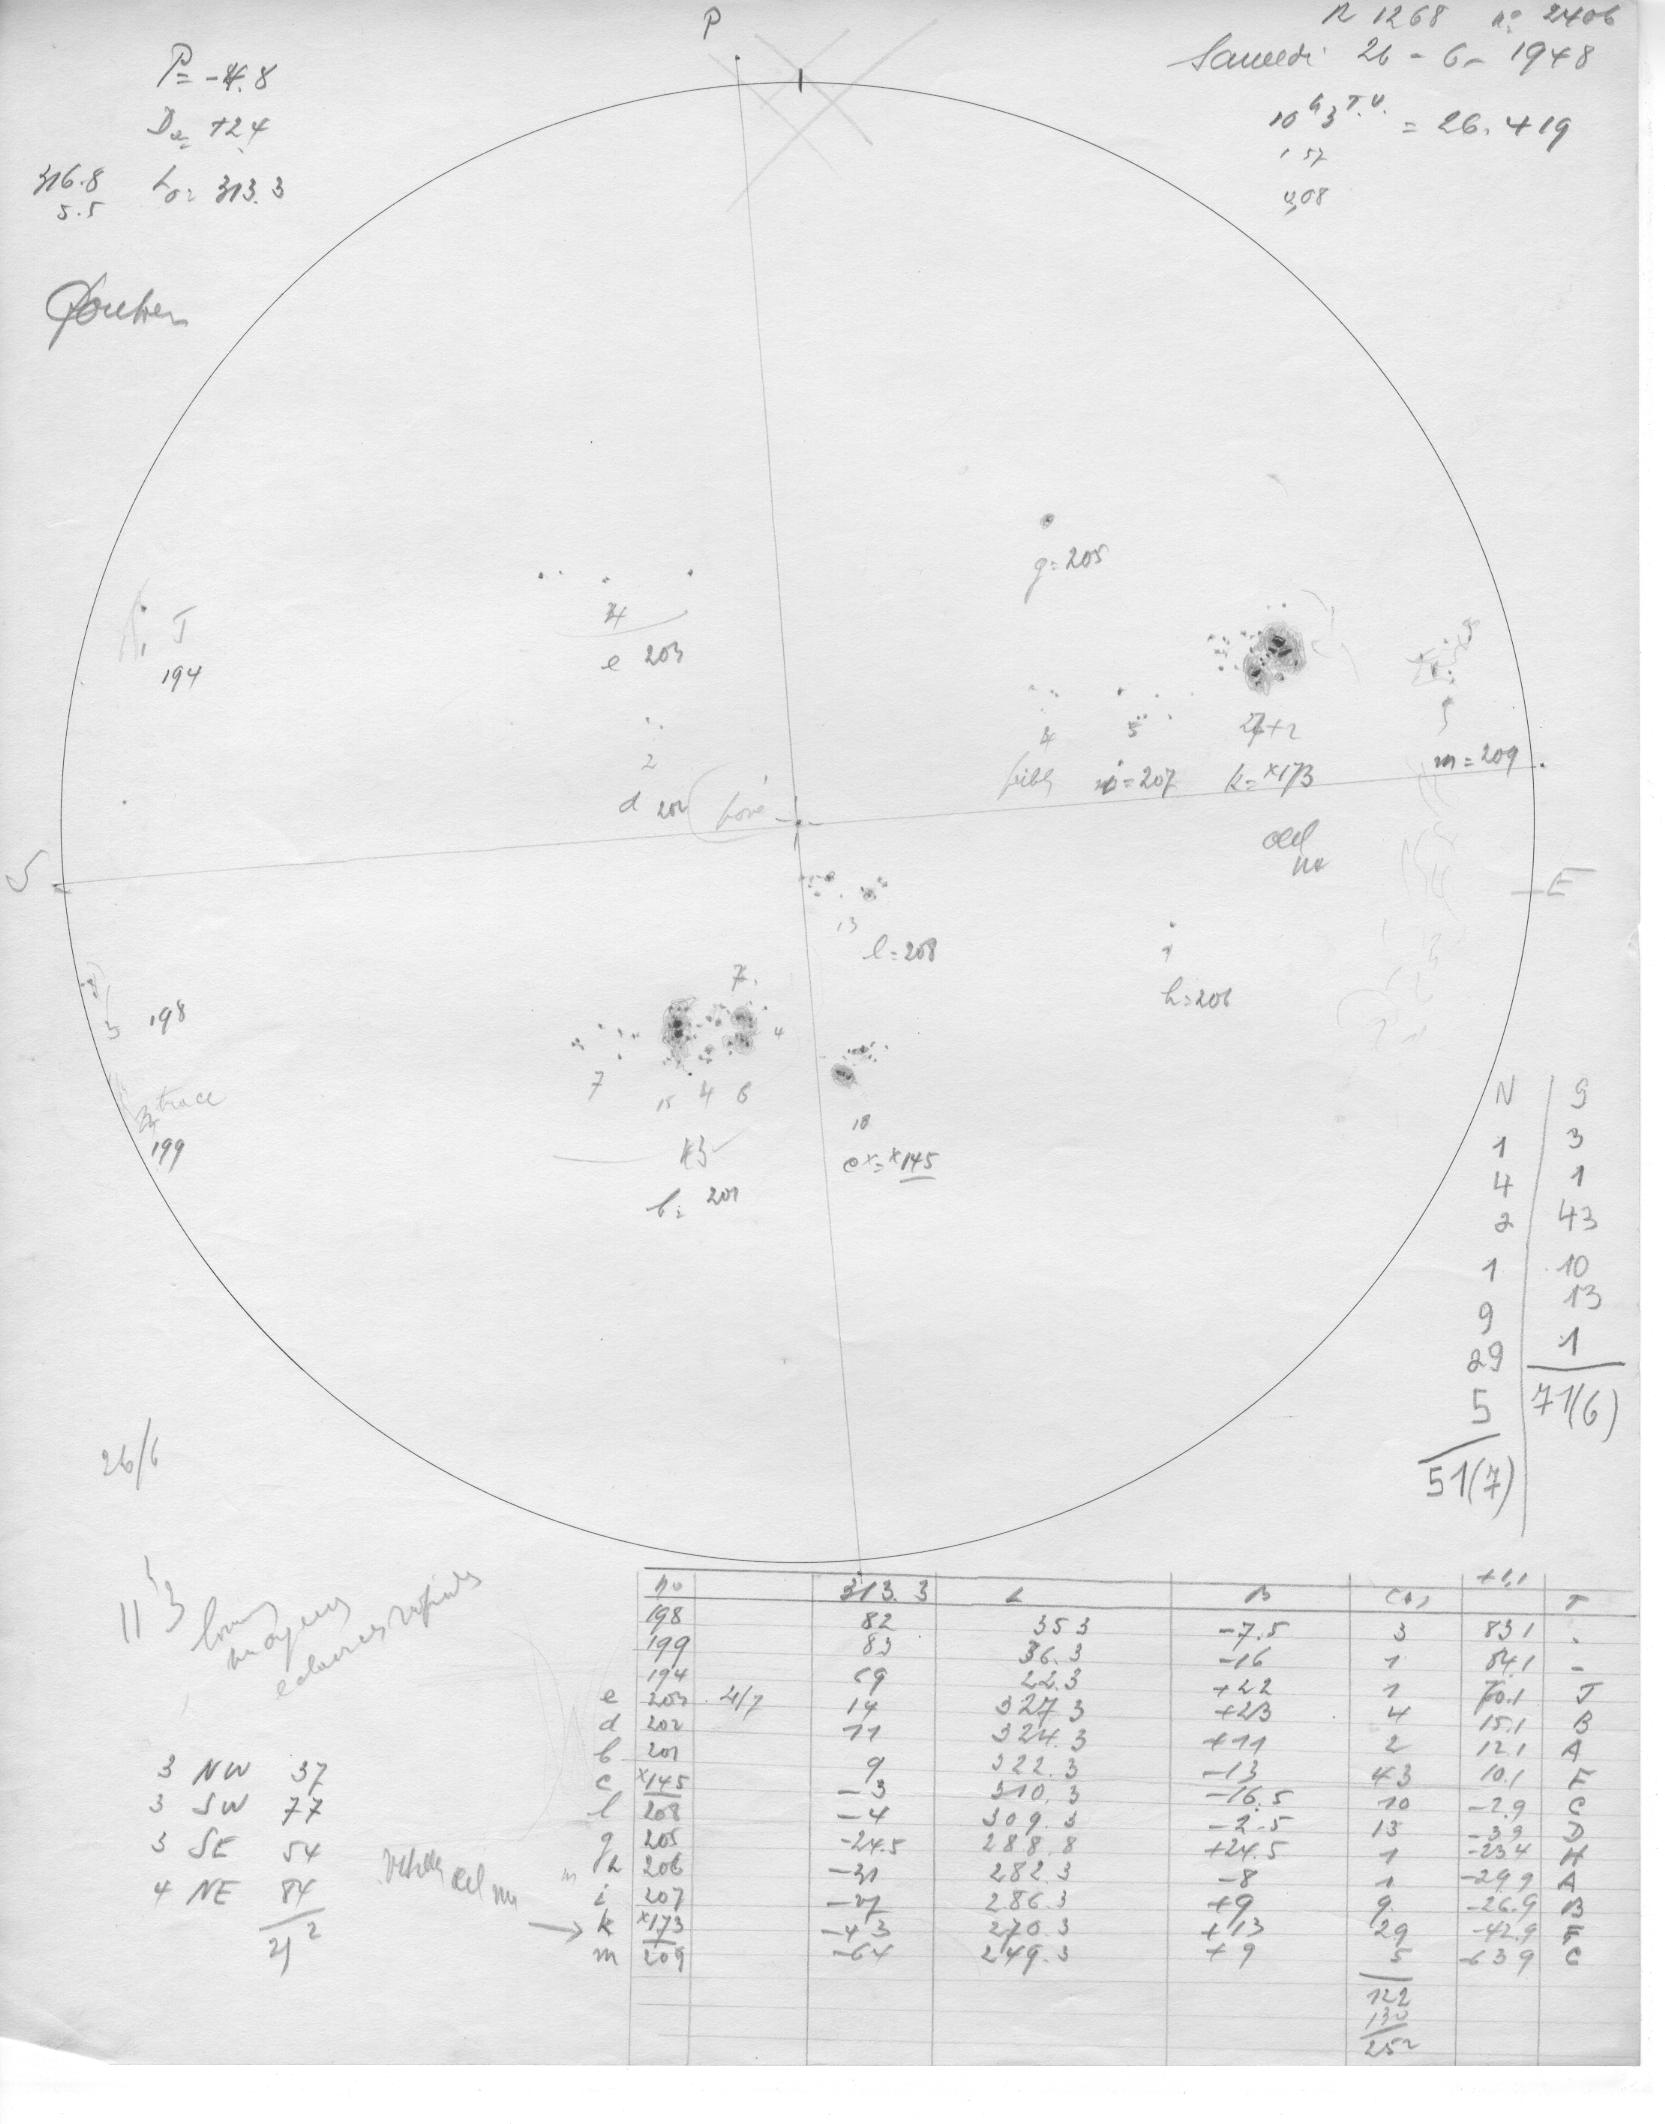 P
R 1268 n° 2406
Samedi 26-6-1948
10h 3 T.U. = 26.419
1 57
0,08
P= -4.8
D= +2.4
316.8 L0= 313.3
5.5
g=205
J
194
4
e 203
2
d 202
4
faible
5
i=207
27+2
k=×173
m=209
S
E
13
l=208
1
h=206
3 198
trace
199
7
7
4
15 4 6
43
b= 201
10
c×=×145
N | S
1 | 3
4 | 1
2 | 43
1 | 10
9 | 13
29 | 1
5 | 71(6)
51(7)
26/6
11h3
no 313.3 L B +1,1 T
198 82 353 -7.5 3 83.1 .
199 83 36.3 -16 1 84.1 -
194 69 22.3 +22 1 70.1 J
e 203 4/7 14 327.3 +23 4 15.1 B
d 202 11 324.3 +11 2 12.1 A
b 201 9 322.3 -13 43 10.1 F
c ×145 -3 310.3 -16.5 10 -2.9 C
l 208 -4 309.3 -2.5 13 -3.9 D
g 205 -24.5 288.8 +24.5 1 -23.4 H
h 206 -31 282.3 -8 1 -29.9 A
i 207 -27 286.3 +9 9 -26.9 B
k ×173 -43 270.3 +13 29 -42.9 F
m 209 -64 249.3 +9 5 -63.9 C
122
130
252
3 NW 37
3 SW 77
3 SE 54
4 NE 84